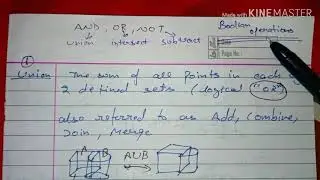 Made with KINEMASTER
Boolean operations
AND, OR, NOT
union intersect subtract
Page No.:
①
Union → The sum of all points in each of
2 defined sets (logical "OR")
also referred to as Add, Combine,
Join, Merge
A B AUB